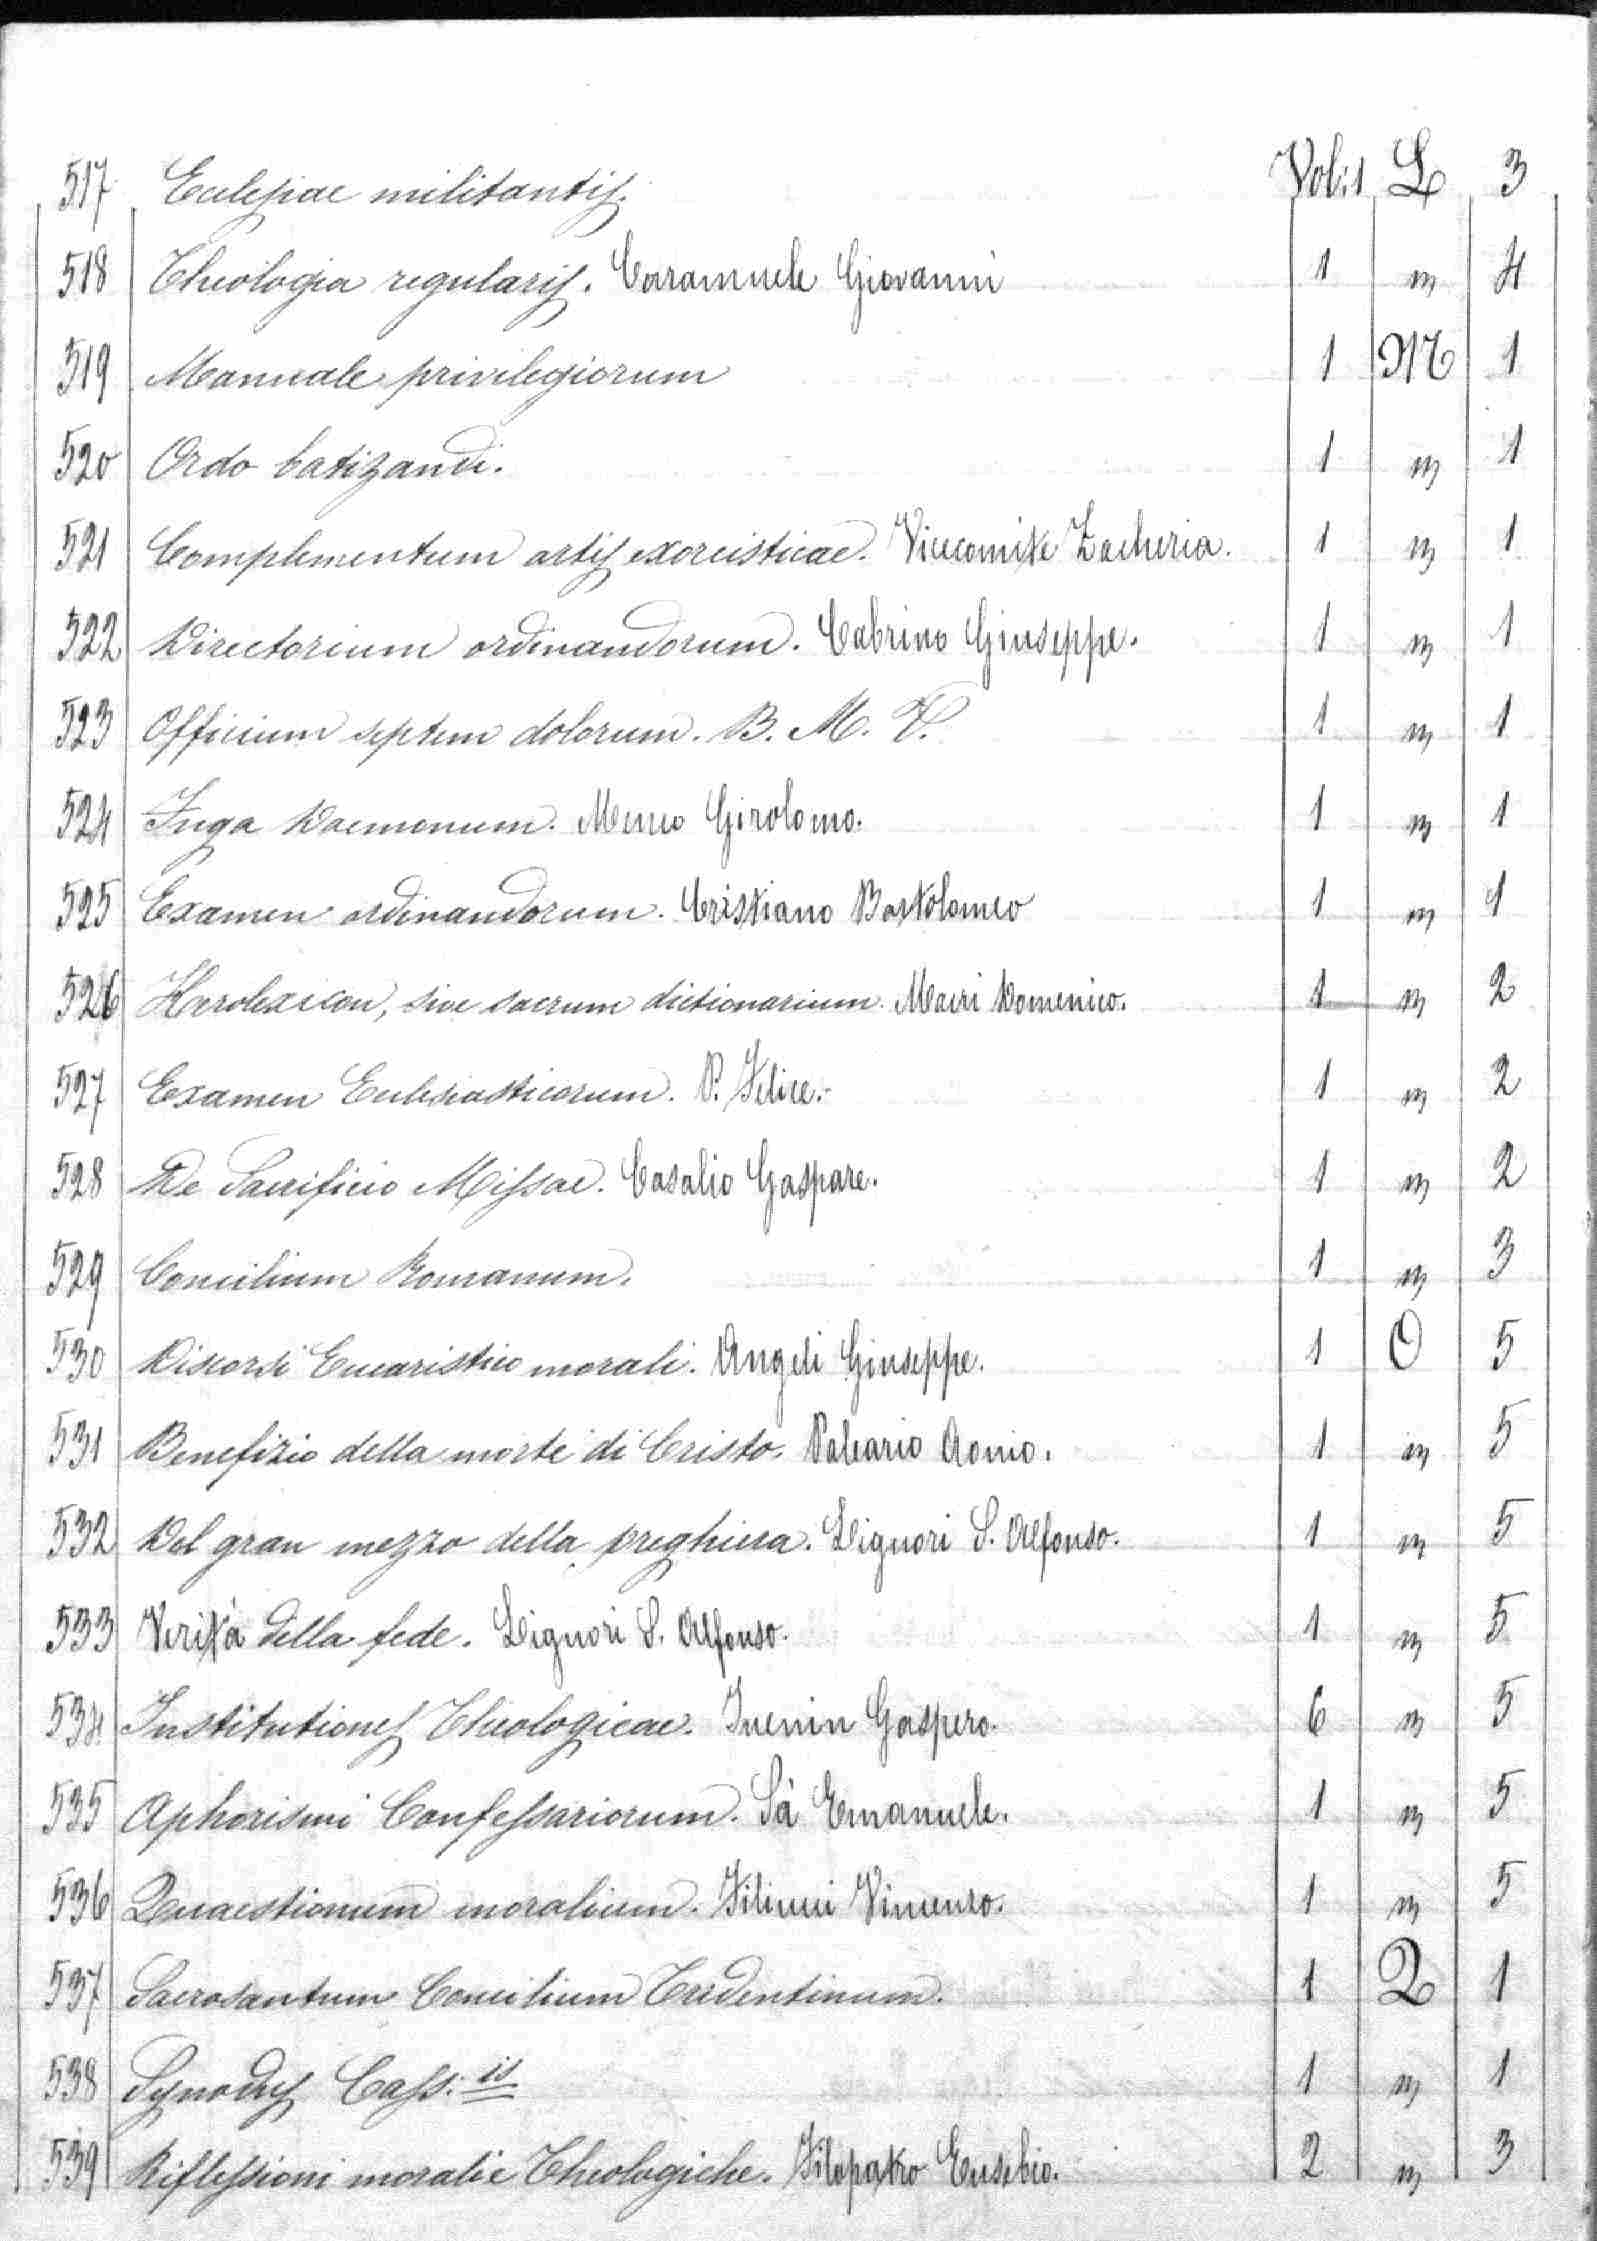 517 Eclesiae militantis. Vol: 1 L 3
518 Theologia regularis. Caramuele Giovanni 1 „ 4
519 Manuale privilegiorum 1 M 1
520 Ordo batizandi. 1 „ 1
521 Complementum artis exorcisticae. Vicecomite Zacheria. 1 „ 1
522 Directorium ordinandorum. Cabrino Giuseppe. 1 „ 1
523 Officium septem dolorum. B. M. V. 1 „ 1
524 Fuga Daemonum. Girolomo. 1 „ 1
525 Examen ordinandorum. Cristiano Bartolomeo 1 „ 1
526 Hierolexicon, sive sacrum dictionarium. Macri Domenico. 1 „ 2
527 Examen Eclesiasticorum. P. Felice. 1 „ 2
528 De Sacrificio Missae. Casalio Gaspare. 1 „ 2
529 Concilium Romanum. 1 „ 3
530 Discorsi Eucaristico morali. Angeli Giuseppe. 1 O 5
531 Benefizio della morte di Cristo. Paleario Aonio. 1 „ 5
532 Del gran mezzo della preghiera. Liguori S. Alfonso. 1 „ 5
533 Verità della fede. Liguori S. Alfonso. 1 „ 5
534 Institutiones Theologicae. Juenin Gaspero. 6 „ 5
535 Aphorismi Confessariorum. Sà Emanuele. 1 „ 5
536 Quaestionum moralium. Filiucci Vincenzo. 1 „ 5
537 Sacrosantum Concilium Tridentinum. 1 Q 1
538 Synodus Cass: is 1 „ 1
539 Riflessioni morali e Theologiche. Filopatro Eusebio. 2 „ 3